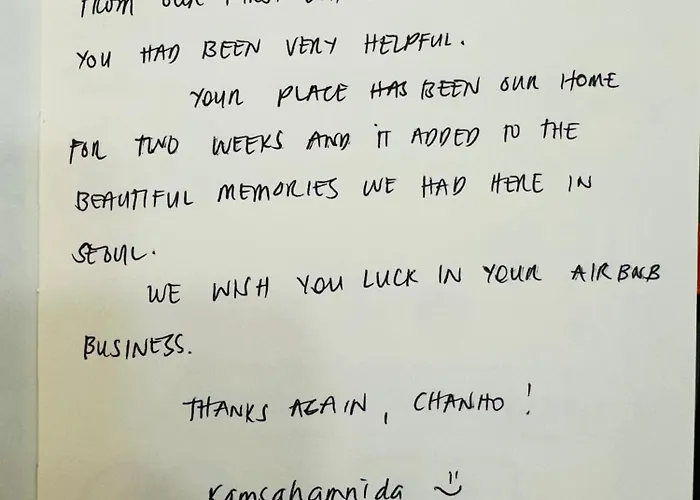 FROM OUR FIRST
YOU HAD BEEN VERY HELPFUL.
YOUR PLACE HAS BEEN OUR HOME
FOR TWO WEEKS AND IT ADDED TO THE
BEAUTIFUL MEMORIES WE HAD HERE IN
SEOUL.
WE WISH YOU LUCK IN YOUR AIRBNB
BUSINESS.
THANKS AGAIN, CHANHO!
Kamsahamnida